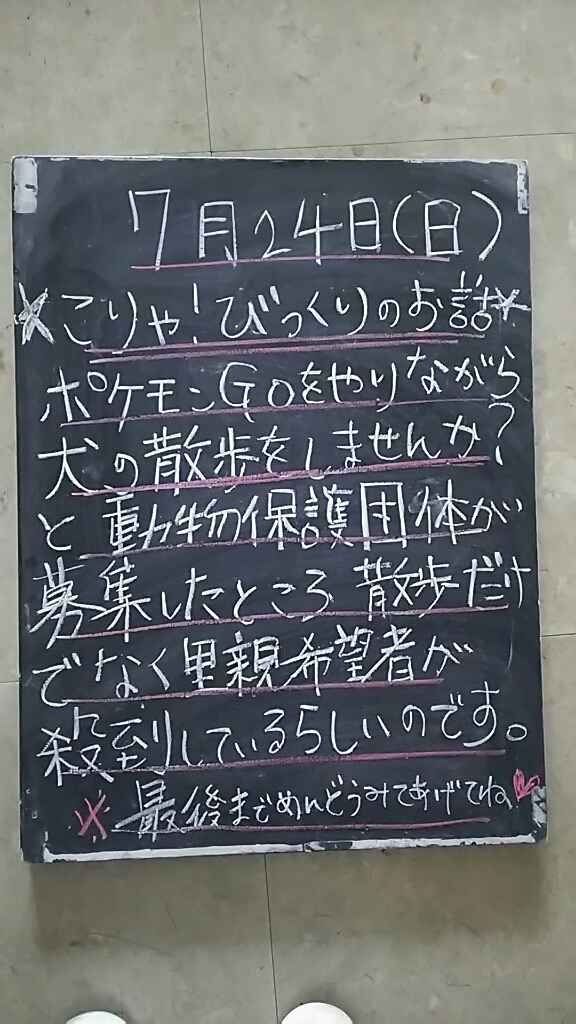 7月24日(日)
☆こりゃ!びっくりのお話☆
ポケモンGOをやりながら
犬の散歩をしませんか?
と動物保護団体が
募集したところ 散歩だけ
でなく里親希望者が
殺到しているらしいのです。
※最後までめんどうみてあげてね♡